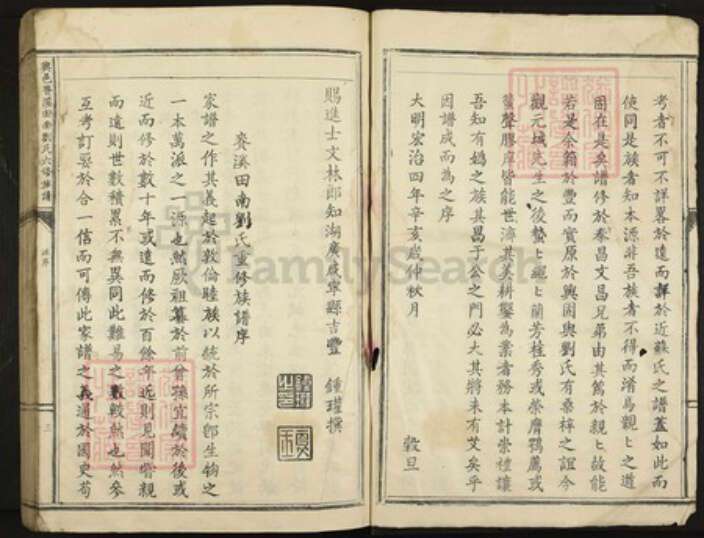 考者不可不詳畧於遠而詳於近蘇氏之譜蓋如此而
使同是族者知本源非吾族者不得而淆焉親ヒ之道
固在是矣譜修於泰昌文昌兄弟由其篤於親ヒ故能
若是余籍於豐而實原於興固與劉氏有桑梓之誼今
觀元城先生之後蟄ヒ繩ヒ蘭芳桂秀或榮膺鶚薦或
蜚聲膠庠皆能世濟其美耕鑿為業者務本計崇禮讓
吾知有媯之族其昌于公之門必大其將來有艾矣乎
因譜成而為之序
大明宏治四年辛亥歲仲秋月 穀旦
賜進士文林郎知湖廣咸寧縣吉豐 鍾瓘撰
賚溪田南劉氏重修族譜序
家譜之作其義起於敦倫睦族以統於所宗卽生鈞之
一本萬派之一源也然厥祖纂於前曾孫宜續於後或
近而修於數十年或遠而修於百餘年近則見聞響親
而遠則世數積累不無異同此難易之數較然也然參
互考訂要於合一信而可傳此家譜之義通於國史苟
興邑賚溪田南劉氏六修族譜
序
三
FamilySearch